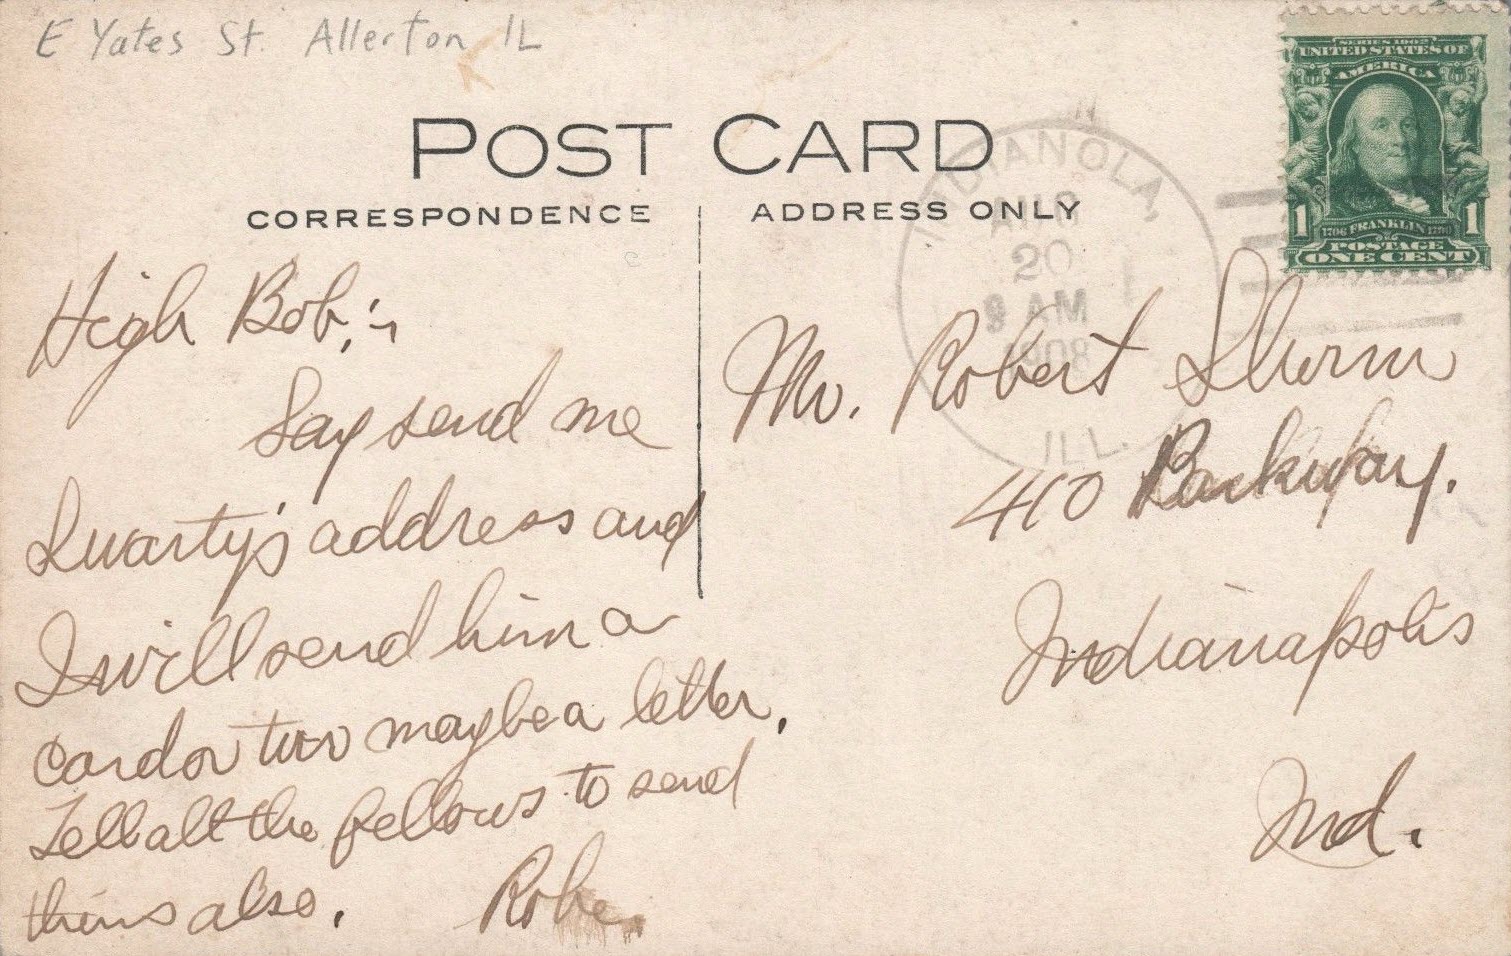 E Yates St. Allerton IL
POST CARD
CORRESPONDENCE
ADDRESS ONLY
SERIES 1902
UNITED STATES OF
AMERICA
1 1
1706 FRANKLIN 1790
POSTAGE
ONE CENT
INDIANOLA,
AUG
20
9 AM
1908
ILL.
High Bob;-
Say send me
Swarty's address and
I will send him a
card or two maybe a letter.
Tell all the fellows to send
thens also.
Mr. Robert
410 Parkway.
Indianapolis
Ind.